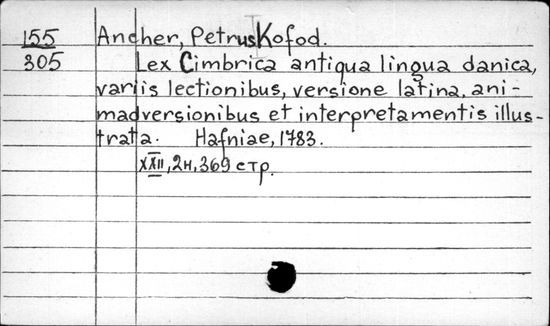 155 Ancher, Petrus Kofod.
305 Lex Cimbrica antiqua lingua danica,
variis lectionibus, versione latina, ani-
madversionibus et interpretamentis illus-
trata. Hafniae, 1783.
XXII, 2н, 369 стр.